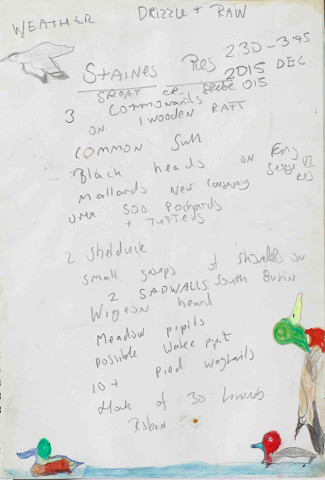 WEATHER DRIZZLE + RAIN
STAINES RES 2.30 - 3.45
2015 DEC
3 Cormorants
on 1 wooden RAFT
Common Gull
Black heads on King
Mallards near Causeway
over 500 Pochards
+ TUFTEDS
2 Shelduck
small groups of shovelers on
2 GADWALLS South Basin
Wigeon heard
Meadow pipits
possible water pipit
10+ pied wagtails
flock of 30
Robin